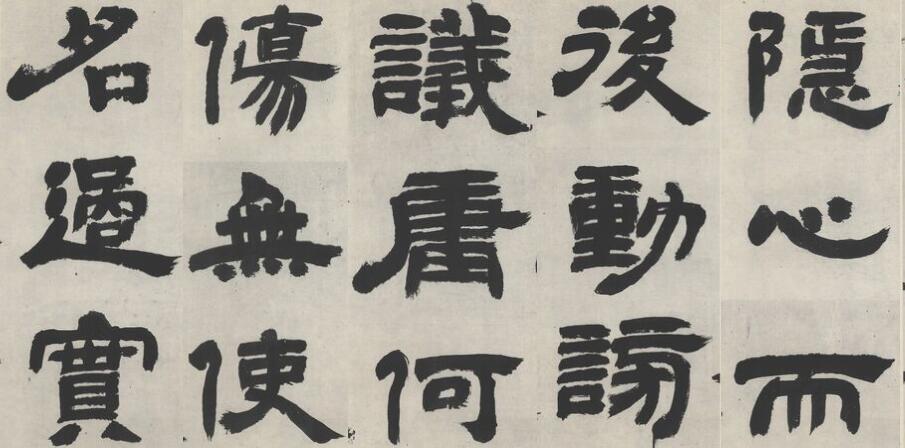 隱心而
後動謗
議庸何
傷無使
名過實